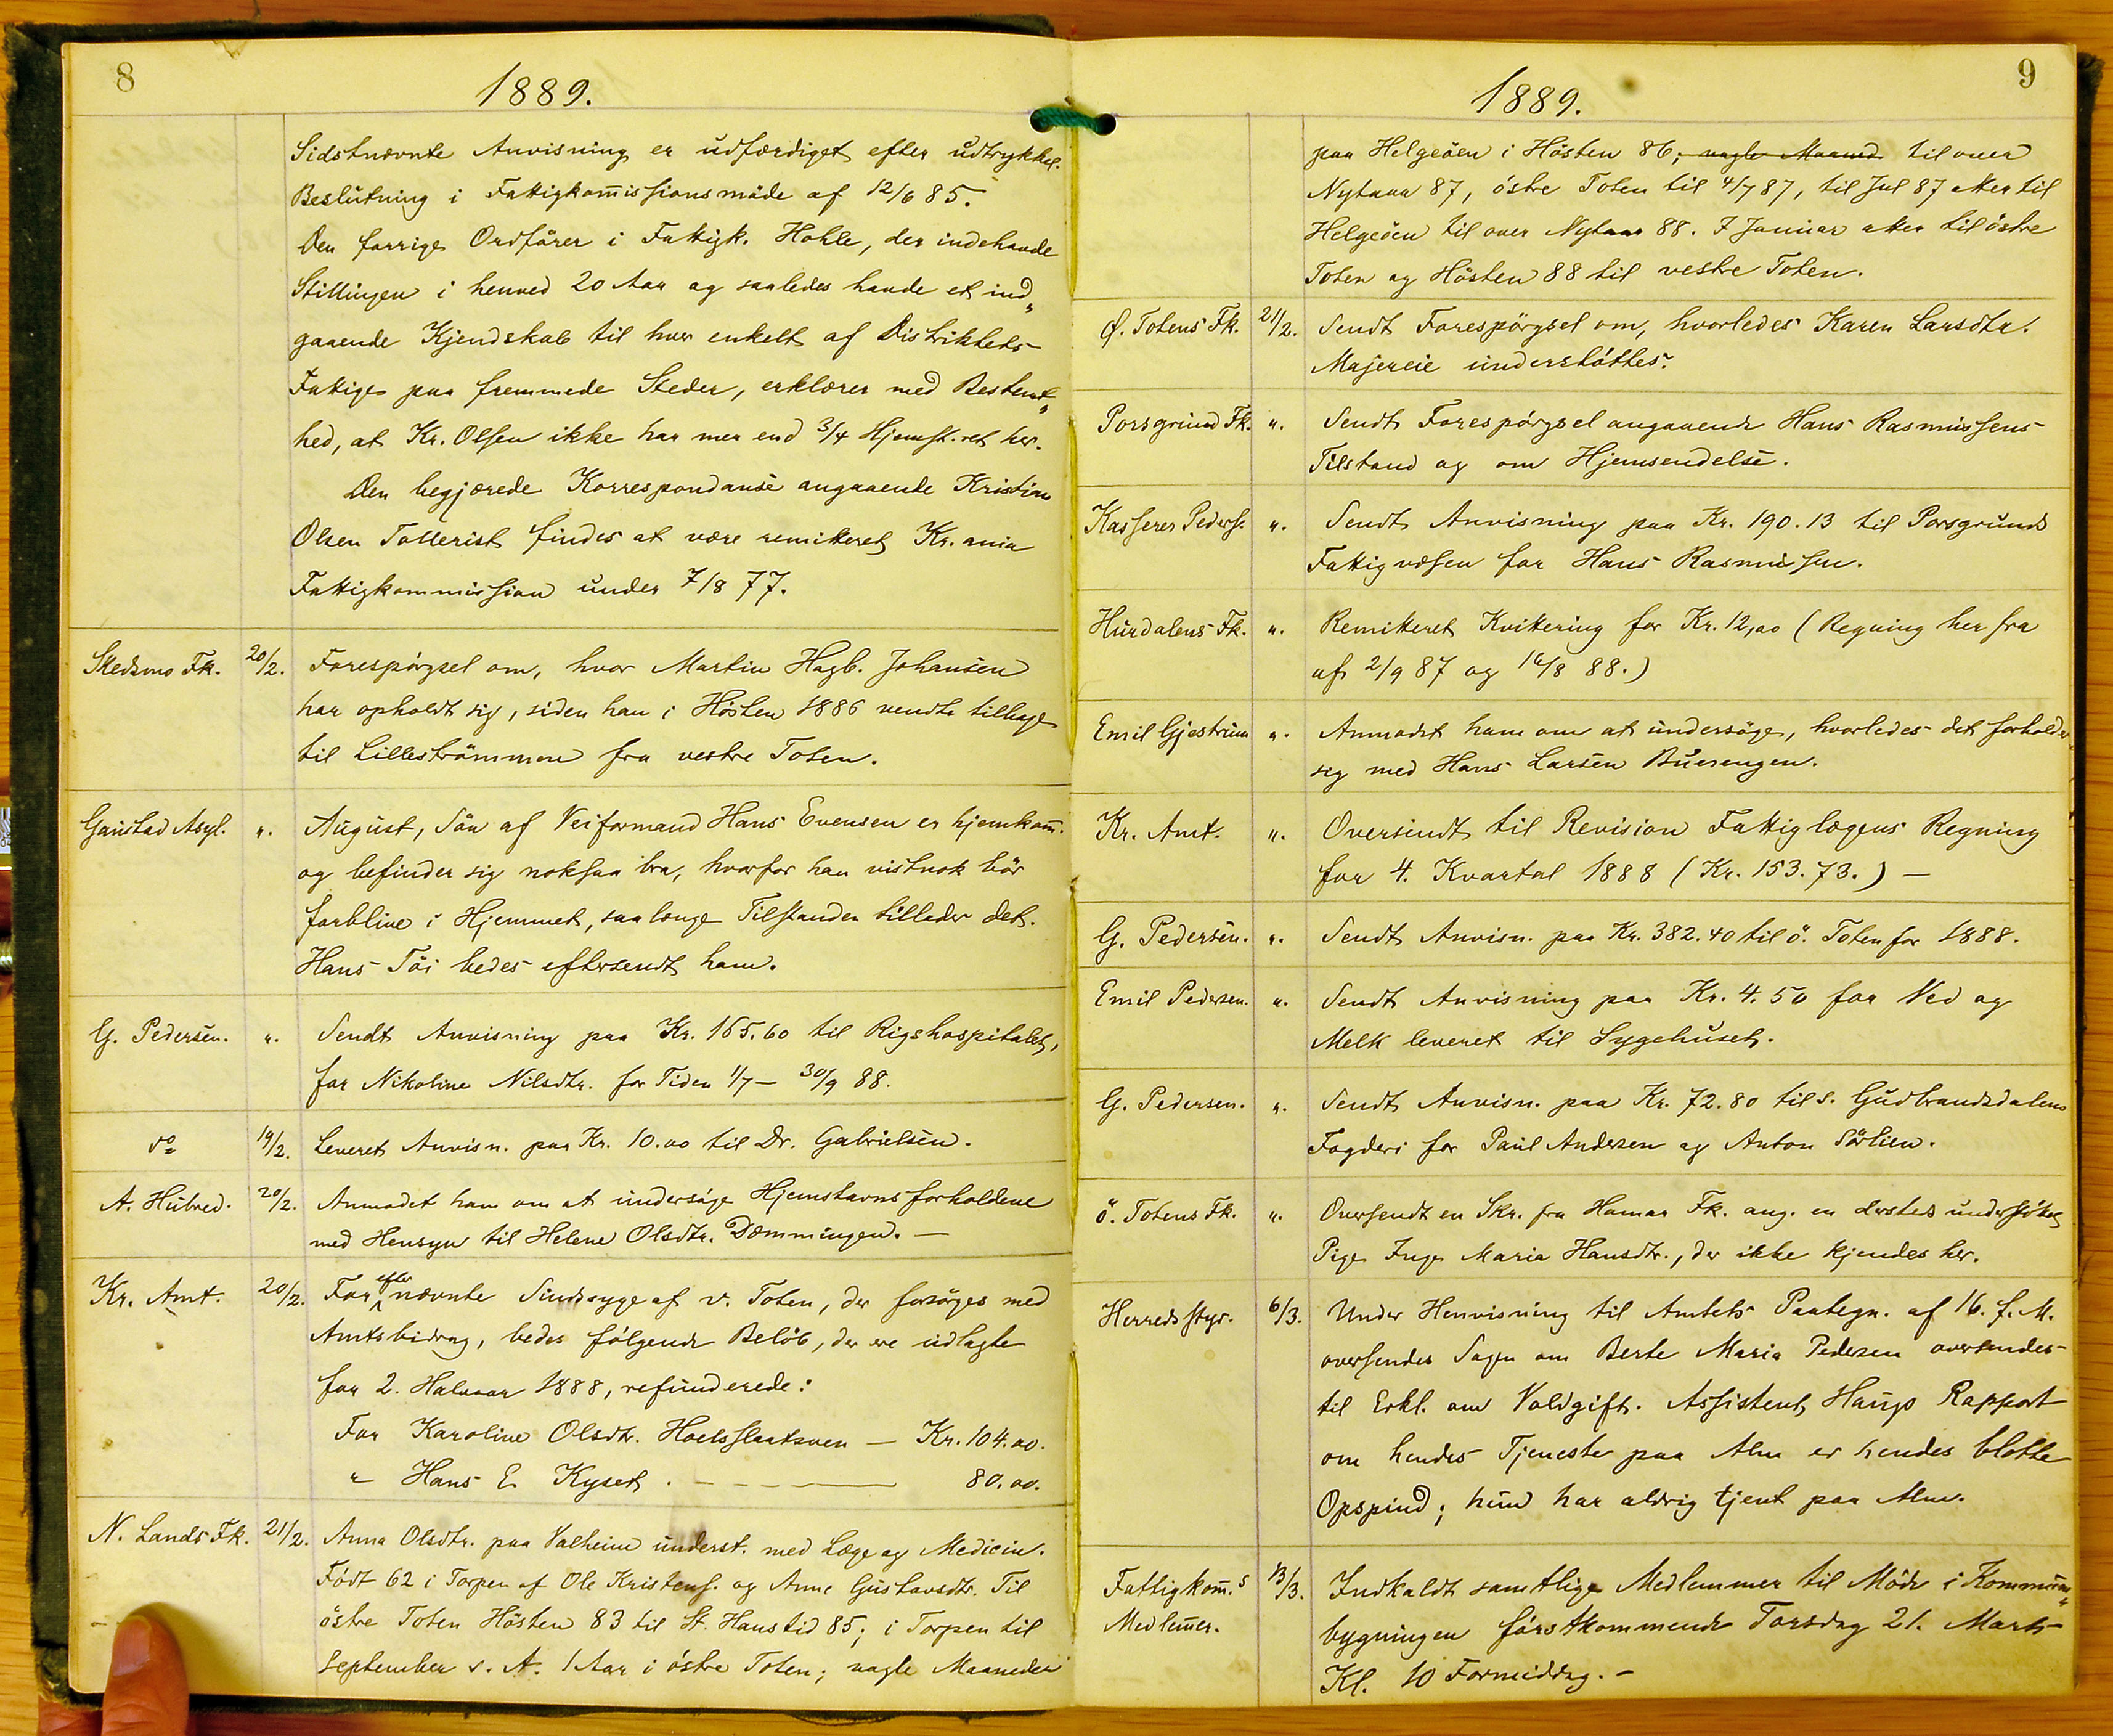 8
1889.
Sidstnævnte Anvisning er udfærdiget efter udtrykkel.
Beslutning i Fattigkom̅issionsmøde af 12/6 85.
Den forrige Ordfører i Fattigk. Hohle, der indehavde
Stillingen i henved 20 Aar og saaledes havde et ind„
gaaende Kjendskab til hver enkelt af Distriktets
Fattige paa fremmede Steder, erklærer med Bestemt„
hed, at Kr. Olsen ikke har mer end 3/4 Hjemst.ret her.
Den begjærede Korrespondanse angaaende Kristian
Olsen Tollerist findes at være remitteret Kr.ania
Fattigkommission under 7/8 77.
Skedsmo Fk. 20/2. Forespørgsel om, hvor Martin Hagb. Johansen
har opholdt sig, siden han i Høsten 1886 vendte tilbage
til Lillestrømmen fra vestre Toten.
Gaustad Asyl. ". August, Søn af Veiformand Hans Evensen er hjemkom̅.
og befinder sig noksaa bra, hvorfor han vistnok bør
forblive i Hjemmet, saalænge Tilstanden tillader det.
Hans Tøi bedes eftersendt ham.
G. Pedersen. ". Sendt Anvisning paa Kr. 165.60 til Rigshospitalet,
for Nikoline Nilsdtr. for Tiden 1/7 – 30/9 88.
do 19/2. Leveret Anvisn. paa Kr. 10.00 til Dr. Gabrielsen.
A. Hubred. 20/2. Anmodet ham om at undersøge Hjemstavnsforholdene
med Hensyn til Helene Olsdtr. Dæmmingen. —
Kr. Amt. 20/2. For efternævnte Sindssyge af v. Toten, der forsørges med
Amtsbidrag, bedes følgende Beløb, der ere udlagte
for 2. Halvaar 1888, refunderede:
For Karoline Olsdtr. Hoelsslaatsveen — Kr. 104.00.
" Hans E. Kyset . — — — — 80.00.
N. Lands Fk. 21/2. Anna Olsdtr. paa Valheim underst. med Læge og Medicin.
Født 62 i Torpen af Ole Kristens. og Anne Gustavsdtr. Til
østre Toten Høsten 83 til St. Hanstid 85; i Torpen til
September s. A. 1 Aar i østre Toten; nogle Maaneder
9
1889.
paa Helgeøen i Høsten 86; nogle Maaned til over
Nytaar 87, østre Toten til 4/7 87, til Jul 87 atter til
Helgeøen til over Nytaar 88. I Januar atter til østre
Toten og Høsten 88 til vestre Toten.
Ø. Totens Fk. 21/2. Sendt Forespørgsel om, hvorledes Karen Larsdtr.
Majereie understøttes?
Porsgrund Fk. ". Sendt Forespørgsel angaaende Hans Rasmussens
Tilstand og om Hjemsendelse.
Kasserer Peders. ". Sendt Anvisning paa Kr. 190.13 til Porsgrunds
Fattigvæsen for Hans Rasmussen.
Hurdalens Fk. ". Remitteret Kvittering for Kr. 12,00 (Regning her fra
af 2/9 87 og 16/8 88.)
Emil Gjestrum ". Anmodet ham om at undersøge, hvorledes det forholder
sig med Hans Larsen Buerengen.
Kr. Amt. ". Oversendt til Revision Fattiglægens Regning
for 4. Kvartal 1888 (Kr. 153.73.) —
G. Pedersen. ". Sendt Anvisn. paa Kr. 382.40 til ø. Toten for 1888.
Emil Pedersen. ". Sendt Anvisning paa Kr. 4.50 for Ved og
Melk leveret til Sygehuset.
G. Pedersen. ". Sendt Anvisn. paa Kr. 72.80 til s. Gudbrandsdalens
Fogderi for Paul Andersen og Anton Sørlien.
ø. Totens Fk. ". Oversendt en Skr. fra Hamar Fk. ang. en dersteds understøttet
Pige Inge Maria Hansdtr., der ikke kjendes her.
Herredsstyr. 6/3. Under Henvisning til Amtets Paategn. af 16. f. M.
oversendes Sagen om Berte Maria Pedersen oversendes
til Erkl. om Voldgift. Assistent Haugs Rapport
om hendes Tjeneste paa Alm er hendes blotte
Opspind; hun har aldrig tjent paa Alm.
Fattigkom̅.s 13/3. Indkaldt samtlige Medlemmer til Møde i Kommune„
Medlem̅er. bygningen førstkommende Torsdag 21. Marts
Kl. 10 Formiddag. —